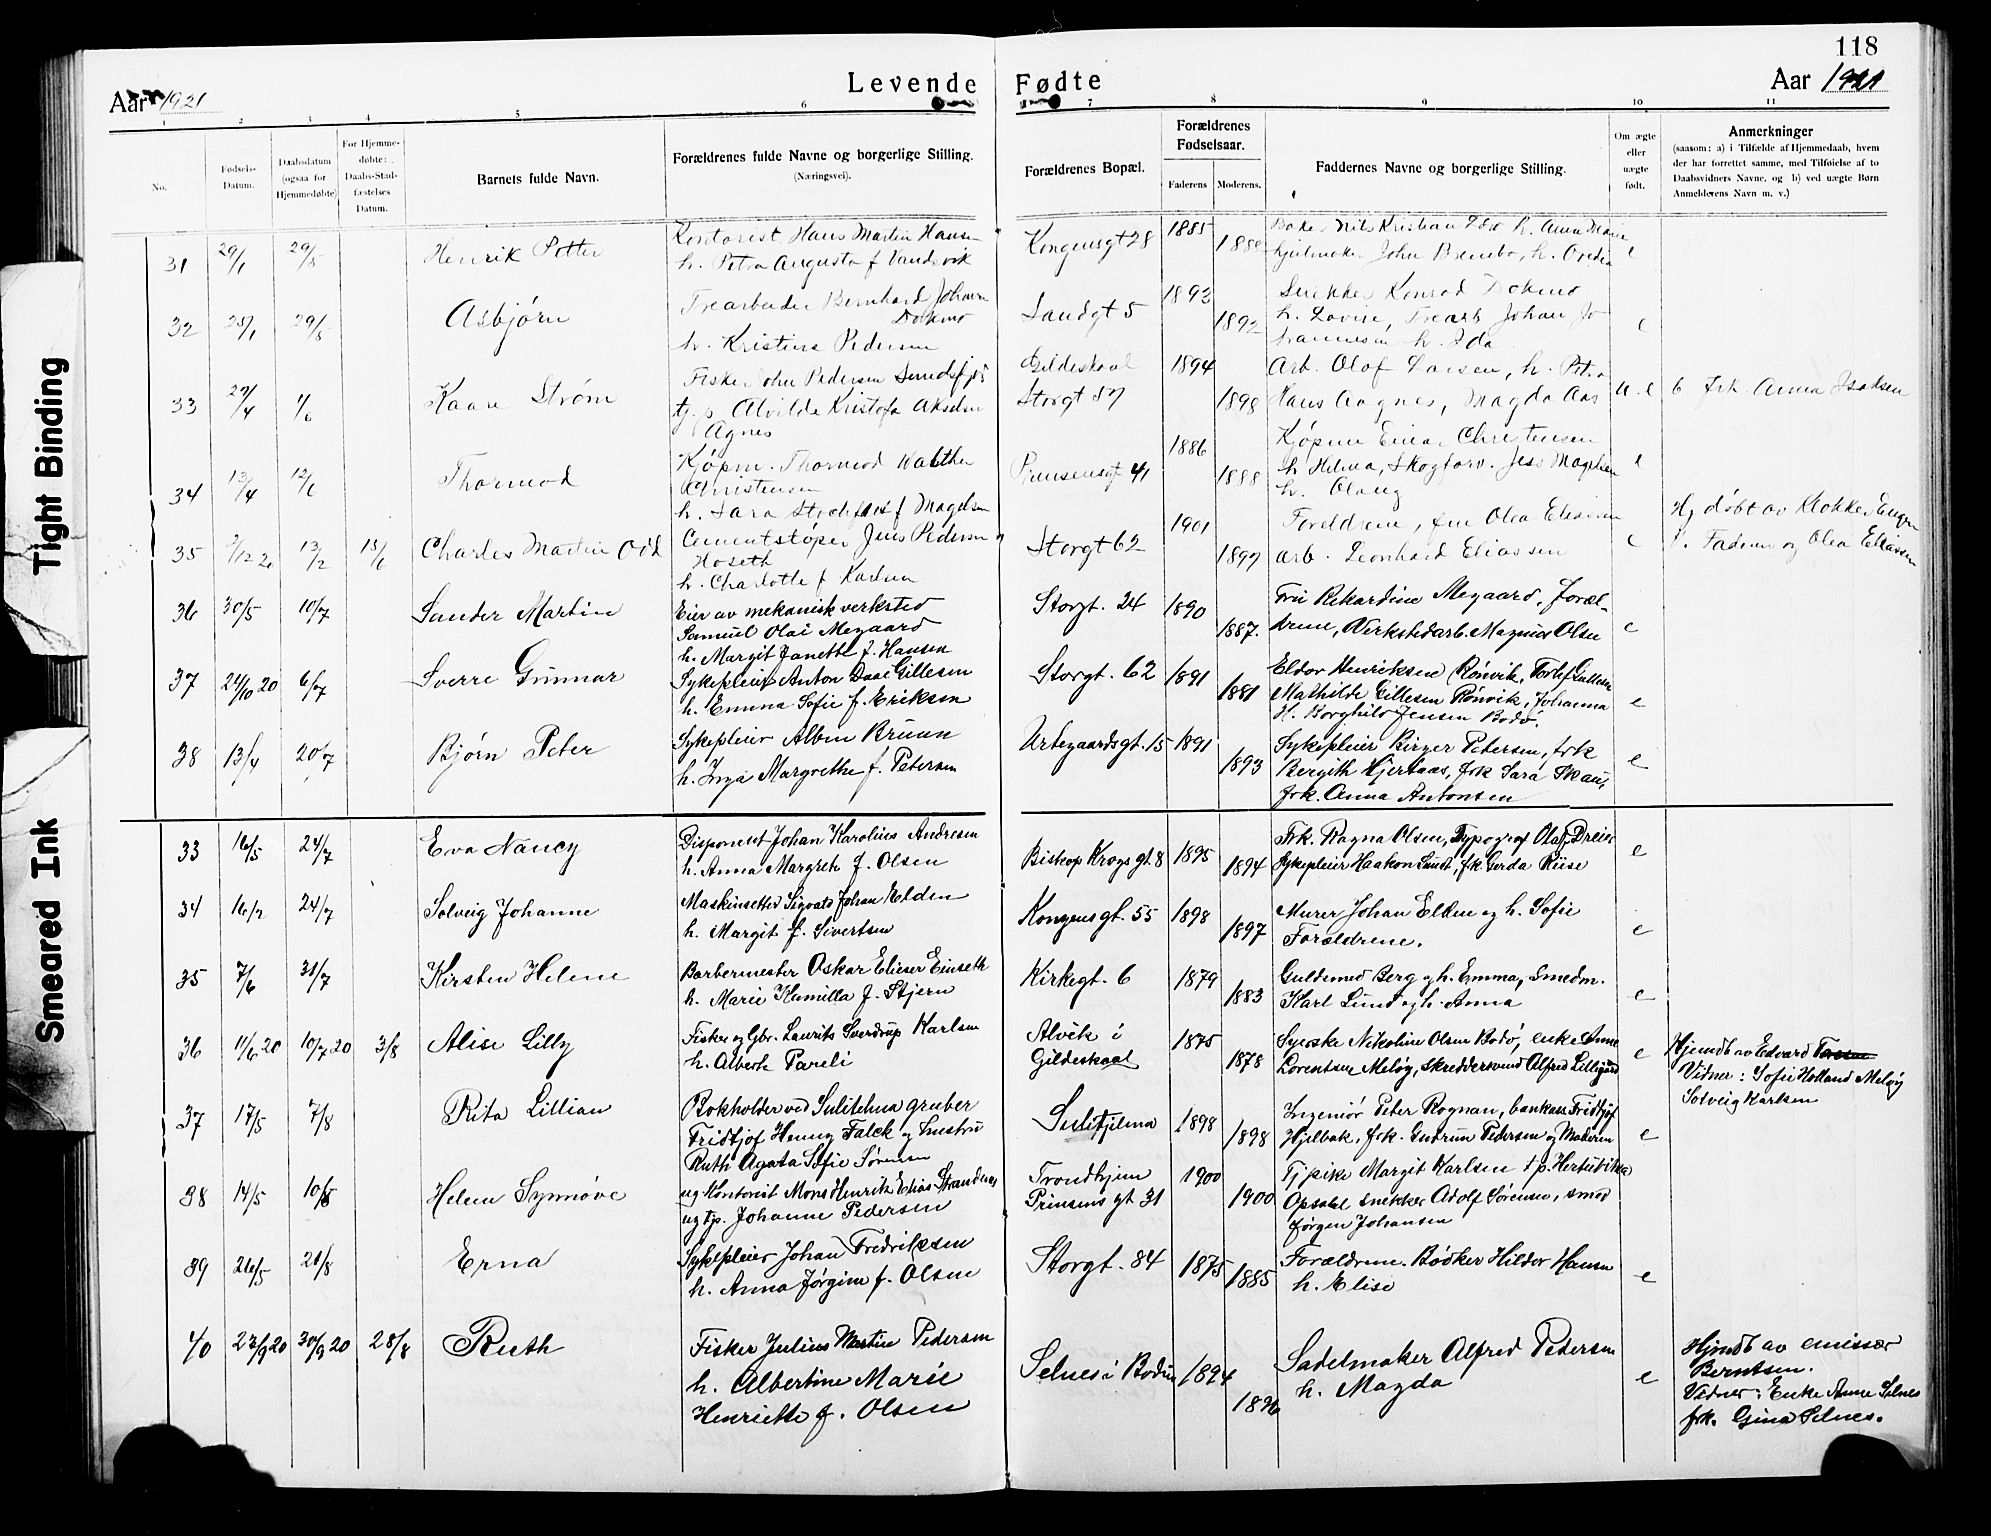 118
Levende
Fødte
Aar 1921
Aar 1921
1 2 3 4 5 6 7 8 9 10 11
No.
Fødsels-
Datum.
Daabsdatum
(ogsaa for
Hjemmedøbte)
For Hjemme-
døbte:
Daabs-Stad-
fæstelses
Datum.
Barnets fulde Navn.
Forældrenes fulde Navne og borgerlige Stilling.
(Næringsvei).
Forældrenes Bopæl.
Forældrenes
Fødselsaar.
Faderens
Moderens.
Faddernes Navne og borgerlige Stilling.
Om ægte
eller
uægte
født.
Anmerkninger
(saasom: a) i Tilfælde af Hjemmedaab, hvem
der har forrettet samme, med Tilføielse af to
Daabsvidners Navne, og b) ved uægte Børn
Anmelderens Navn m. v.)
31 29/1 29/5 Henrik Petter
Kontorist Hans Martin Hansen
h. Petra Augusta f Vandvik
Kongensgt 28 1885 1888
Nils Kristian h. Anna
hjulmaker John Brembo, h. e
32 25/1 29/5 Asbjørn
Trearbeider Bernhard Johansen
h. Kristine Pedersen
Sandgt 5 1892 1892
Snekker Konrad
h. Lovise, Trearb Johan Jo
hannesen h. Ida e
33 29/4 1/6 Kaare Strøm
Fisker John Pedersen
tj.p. Alvilde Kristofa Akselsen
Agnes
Gildeskaal
Storgt 57 1894 1898
Arb. Olaf Larsen, h. Petra
Hans Aagnes, Magda Aas u.e b frk. Anna Isaksen
34 13/4 12/6 Thormod
Kjøpm. Thormod Walther
Christensen
h. Sara Stockflet f Magelsen
Prinsensgt 41 1886 1888
Kjøpm Einar Christensen
h Helma, Skogforv. Jess Magelsen
h. Olaug e
35 13/2 15/6 Charles Martin Odd
Cementstøper Jens Pedersen
Hoseth
h. Charlotte f Karlsen
Storgt 62 1901 1897
Foreldrene, fru Olea Eliassen
arb. Leonhard Eliassen e
Hj døbt av Klokker
V. Faderen og Olea Eliassen
36 30/5 10/7 Sander Martin
Eier av mekanisk verksted
Samuel Olai Megaard
h. Margit Janette f. Hansen
Storgt. 24 1890 1887.
Fru Rikardine Megaard, Foræl-
drene, Verkstedarb. Magnus Olsen e
37 24/10 20 6/7 Sverre Gunnar
Sykepleier Anton Daae Gillesen
h. Emma Sofie f. Eriksen
Storgt. 62 1891 1881
Eldor Henriksen Rønvik, Torlif Gillesen
Mathilde Gillesen Rønvik, Johanna
H. Borghild Jensen Bodø. e
38 13/4 20/7 Bjørn Peter
Sykepleier Albin Bruun
h. Inga Margrethe f. Petersen
Urtegaardsgt. 15 1891 1893
Sykepleier Birger Petersen, frk
Bergith Hjertaas, frk Sara Skaus,
frk. Anna Antonsen e
33 16/5 24/7 Eva Nancy
Disponent Johan Karolius Andresen
h. Anna Margrete f. Olsen
Biskop Krogs gt. 8 1895 1894
Frk. Ragna Olsen, Typograf Olaf Dreier
Sykepleier Haakon Sundt, frk Gerda Riise e
34 16/2 24/7 Solveig Johanne
Maskinsetter Sigvats Johan Elden
h. Margit f. Sivertsen
Kongensgt. 55 1898 1897
Murer Johan Elden og h. Sofie
Forældrene. e
35 7/6 31/7 Kirsten Helene
Barbermester Oskar Elieser Einseth
h. Marie Kamilla f. Stjern
Kirkegt. 6 1879 1883
Guldsmed Berg og h. Emma, smedm.
Karl Lund og h. Anna e
36 11/6 20 10/7 20 3/8 Alise Lilly
Fisker og Gbr. Laurits Sverdrup Karlsen
h. Alberte Pareli
Alvik i
Gildeskaal 1875 1878
Syerske Nikoline Olsen Bodø, enke Anne
Lorentsen Meløy, skreddersvend Alfred Lillegård e
Hjemdt av Edvard
Vidner: Sofie Holland Meløy
Solveig Karlsen
37 17/5 7/8 Rita Lillian
Bokholder ved Sulitelma gruber
Fridtjof Henny Falck og hustru
Ruth Agata Sofie Sørensen
Sulitjelma 1898 1898
Ingeniør Peter Rognan, bankass Fridtjof
Hjelbak, frk. Gudrun Pedersen og Moderen e
38 14/5 10/8 Helen Synnøve
ug Kontorist Mons Henrik Elias Strandnes
ug tjp. Johanne Pedersen
Trondhjem
Prinsens gt 31 1900 1900
Tjpike Margit Karlsen tp. Hertidikka
Opsahl snekker Adolf Sørensen, smed
Jørgen Johansen
39 26/5 21/8 Erna
Sykepleier Johan Fredriksen
h. Anna Jørgine f. Olsen
Storgt. 84 1875 1885
Forældrene. Bødker Hildor Hansen
h. Elise e
40 23/9 20 30/9 20 28/8 Ruth
Fisker Julius Martin Pedersen
h. Albertine Marie
Henriette f. Olsen
Selnes i Bodin 1894 1896
Sadelmaker Alfred Pedersen
h. Magda e
Hjemdt av emissær
Berntsen.
Vidner: Enke Anne Selnes
frk. Gina Selnes.
Tight Binding
Smeared Ink